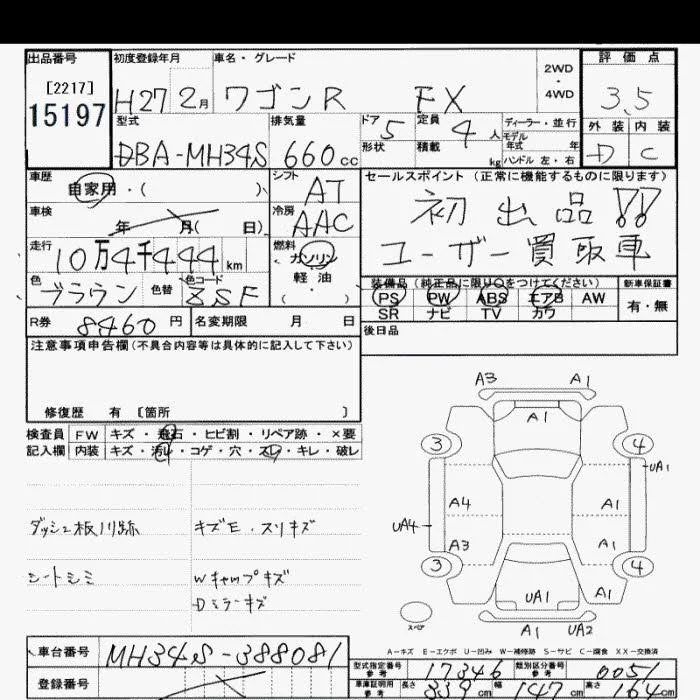 出品番号 初度登録年月 車名・グレード 2WD・4WD 評価点
[2217]
15197 H27 2月 ワゴンR FX 3.5
型式 排気量 ドア 5 定員 4人 ディーラー・並行 外装 内装
モデル年式 年
DBA-MH34S 660cc 形状 積載 kg ハンドル 左・右 D C
車歴 シフト セールスポイント(正常に機能するものに限ります)
自家用・( ) AT 初出品!!
車検 冷房
年 月( 日) AAC ユーザー買取車
走行 燃料
10万4千444km ガソリン
軽油
( )
色 色替 色コード 装備品(純正品に限り○をつけてください) 新車保証書
ブラウン ZSF PS PW ABS エアB AW 有・無
SR ナビ TV カワ
R券 8460円 名変期限 月 日 後日品
注意事項申告欄(不具合内容等は具体的に記入して下さい)
修復歴 有 〔箇所 〕
検査員 FW キズ・飛石・ヒビ割・リペア跡・×要
記入欄 内装 キズ・汚れ・コゲ・穴・スレ・キレ・破レ
A3 A1
A1
3 4
UA1
A4 A1
UA4
A3 A1
3 4
UA1 A1
スペア
A1 UA2
ダッシュ板川跡 キズE・スリキズ
シートシミ Wキャップキズ
Dミラーキズ
A-キズ E-エクボ U-凹み W-補修跡 S-サビ C-腐食 XX-交換済
車台番号 MH34S-388081
型式指定番号 参考 17346 類別区分番号 参考 0051
登録番号
車庫証明用 参考 長さ 339cm 幅 147cm 高さ 164cm